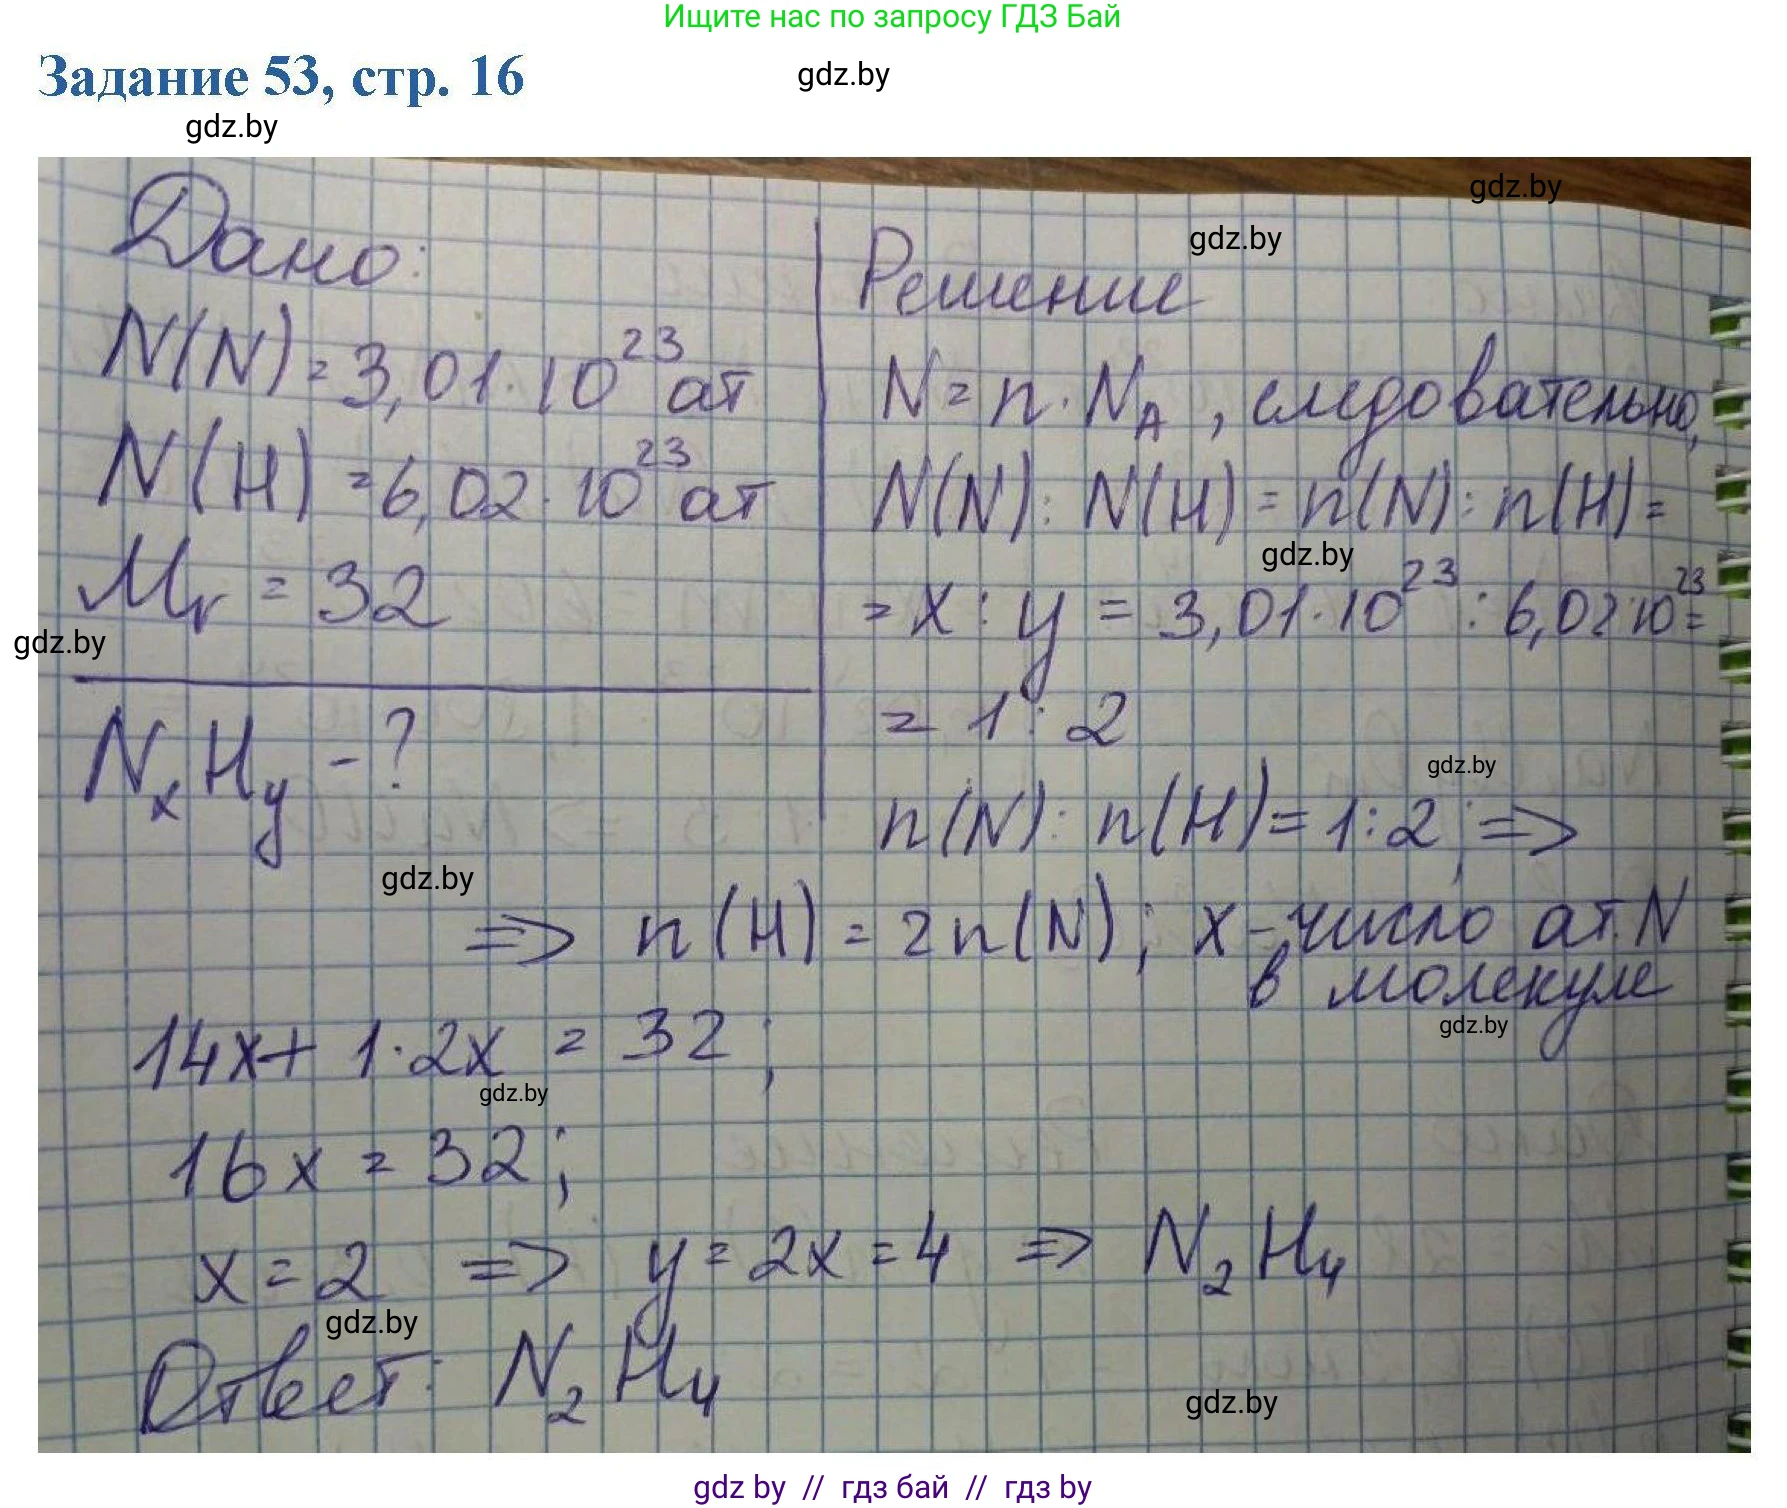 Ищите нас по запросу ГДЗ Бай
Задание 53, стр. 16
gdz.by
gdz.by
gdz.by
gdz.by
Дано:
N(N) = 3,01·10²³ ат
N(H) = 6,02·10²³ ат
Mr = 32
gdz.by
NₓHᵧ - ?
Решение
N = n · N_A, следовательно,
N(N) : N(H) = n(N) : n(H) =
gdz.by
= x : y = 3,01·10²³ : 6,02·10²³ =
= 1 : 2
gdz.by
n(N) : n(H) = 1:2; =>
gdz.by
=> n(H) = 2n(N); x - число ат. N
в молекуле
gdz.by
14x + 1·2x = 32;
gdz.by
16x = 32;
x = 2 => y = 2x = 4 => N₂H₄
gdz.by
Ответ: N₂H₄
gdz.by
gdz by // гдз бай // гдз by